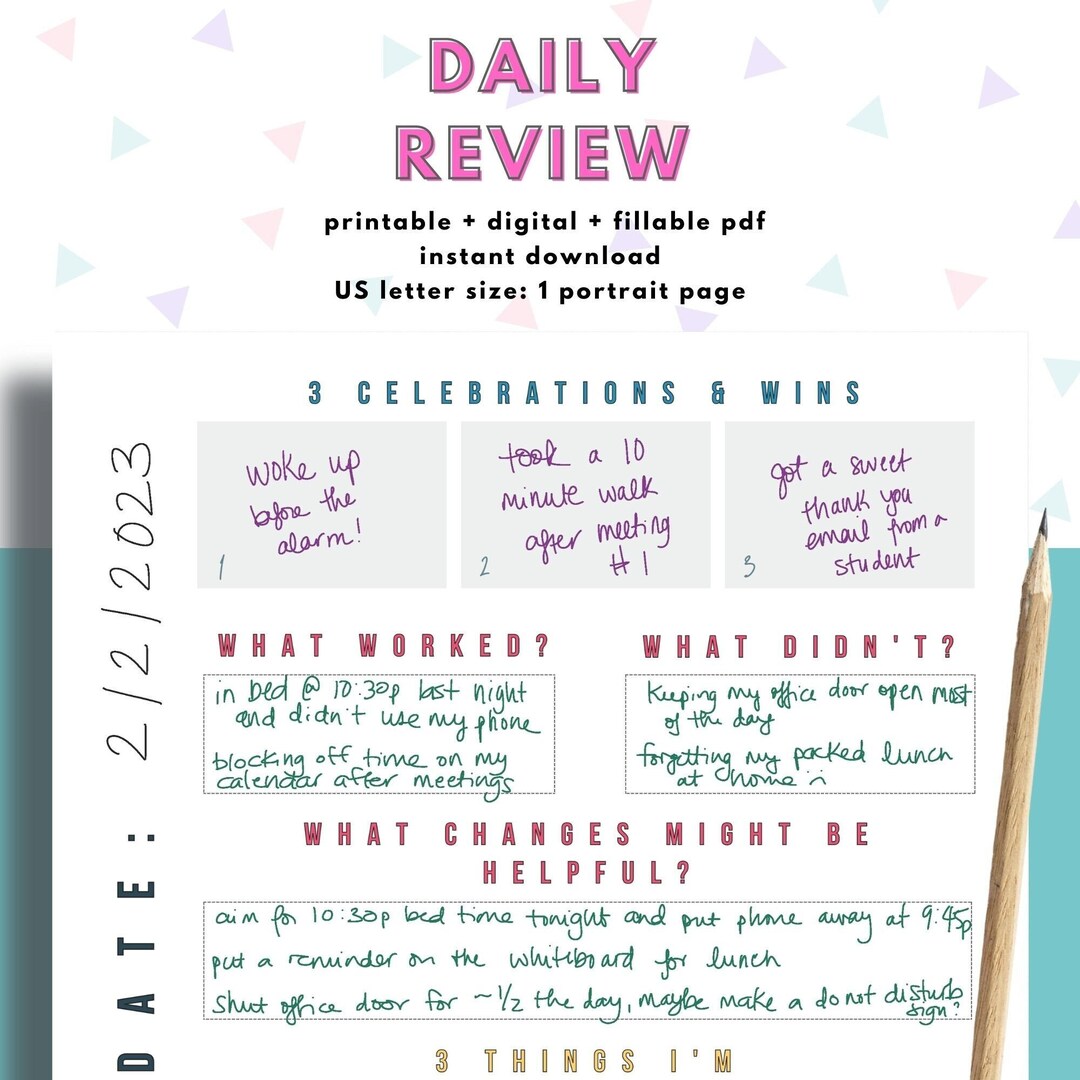 DAILY
REVIEW
printable + digital + fillable pdf
instant download
US letter size: 1 portrait page
DATE: 2/2/2023
3 CELEBRATIONS & WINS
woke up
before the
alarm!
1
took a 10
minute walk
after meeting
#1
2
got a sweet
thank you
email from a
student
3
WHAT WORKED?
in bed @ 10:30p last night
and didn't use my phone
blocking off time on my
calendar after meetings
WHAT DIDN'T?
Keeping my office door open most
of the day
forgetting my packed lunch
at home :(
WHAT CHANGES MIGHT BE
HELPFUL?
aim for 10:30p bed time tonight and put phone away at 9:45p
put a reminder on the whiteboard for lunch
Shut office door for ~1/2 the day, maybe make a do not disturb
sign?
3 THINGS I'M